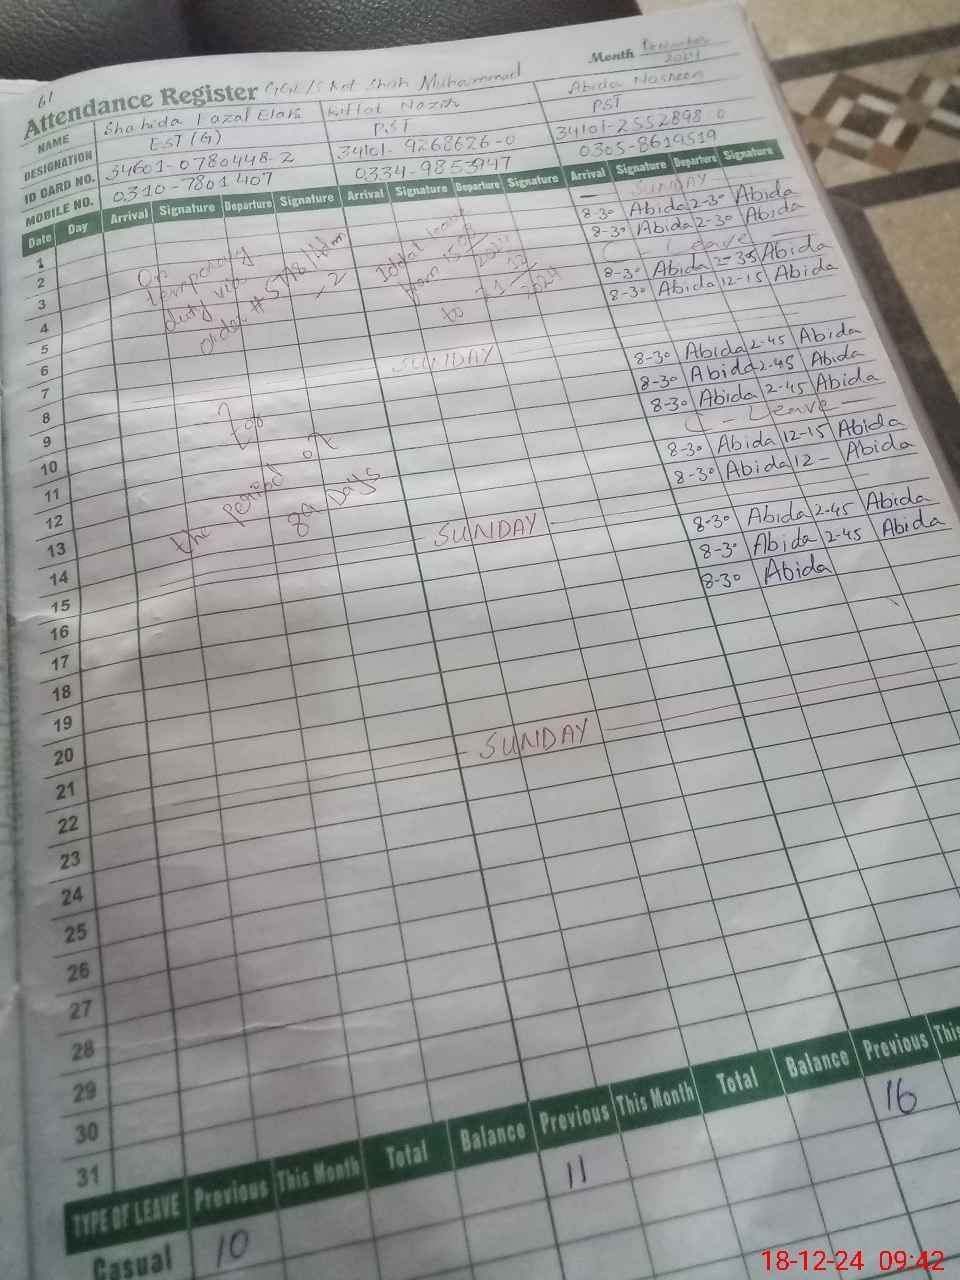 61
Attendance Register GGE/S Kot Shah Muhammad Month December 2024
NAME Shahida Fazal Elahi Iffat Nazir Abida Nasreen
DESIGNATION EST (G) PST PST
ID CARD NO. 34601-0780448-2 34101-9268626-0 34101-2552898-0
MOBILE NO. 0310-7801407 0334-9853947 0305-8619519
Date Day Arrival Signature Departure Signature Arrival Signature Departure Signature Arrival Signature Departure Signature
1 SUNDAY
2 8-30 Abida 2-30 Abida
3 8-30 Abida 2-30 Abida
4 Leave
5 8-30 Abida 2-35 Abida
6 8-30 Abida 12-15 Abida
7
8 SUNDAY
9 8-30 Abida 2-45 Abida
10 8-30 Abida 2-45 Abida
11 8-30 Abida 2-45 Abida
12 Leave
13 8-30 Abida 12-15 Abida
14 8-30 Abida 12- Abida
15 SUNDAY
16 8-30 Abida 2-45 Abida
17 8-30 Abida 2-45 Abida
18 8-30 Abida
19
20
21
22 SUNDAY
23
24
25
26
27
28
29
30
31
On
temporary
duty vide
order #
For
the period of
89 Days
leave
from
to
2024
TYPE OF LEAVE Previous This Month Total Balance Previous This Month Total Balance Previous This
Casual 10 11 16
18-12-24 09:42